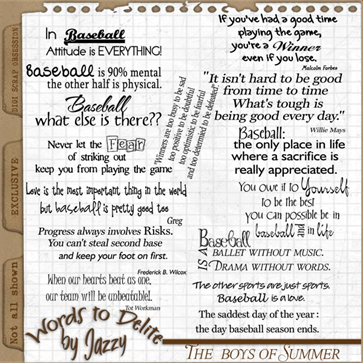 DIGI SCRAP OBSESSION
EXCLUSIVE
Not all shown
In Baseball
Attitude is EVERYTHING!
Baseball is 90% mental
the other half is physical.
Baseball
what else is there??
Never let the Fear
of striking out
keep you from playing the game
Love is the most important thing in the world
but baseball is pretty good too
Greg
Progress always involves Risks.
You can't steal second base
and keep your foot on first.
Frederick B. Wilcox
When our hearts beat as one,
our team will be unbeatable!
Tot Workman
Words to Delite
by Jazzy
"Winners are too busy to be sad
too positive to be doubtful
too optimistic to be fearful
and too determined to be defeated"
If you've had a good time
playing the game,
you're a Winner
even if you lose.
Malcolm Forbes
"It isn't hard to be good
from time to time
What's tough is
being good every day."
Willie Mays
Baseball:
the only place in life
where a sacrifice is
really appreciated.
You owe it to Yourself
to be the best
you can possible be in
baseball and in life
Baseball
IS A BALLET WITHOUT MUSIC.
DRAMA WITHOUT WORDS.
The other sports are just sports.
Baseball is a love.
The saddest day of the year :
the day baseball season ends.
THE BOYS OF SUMMER